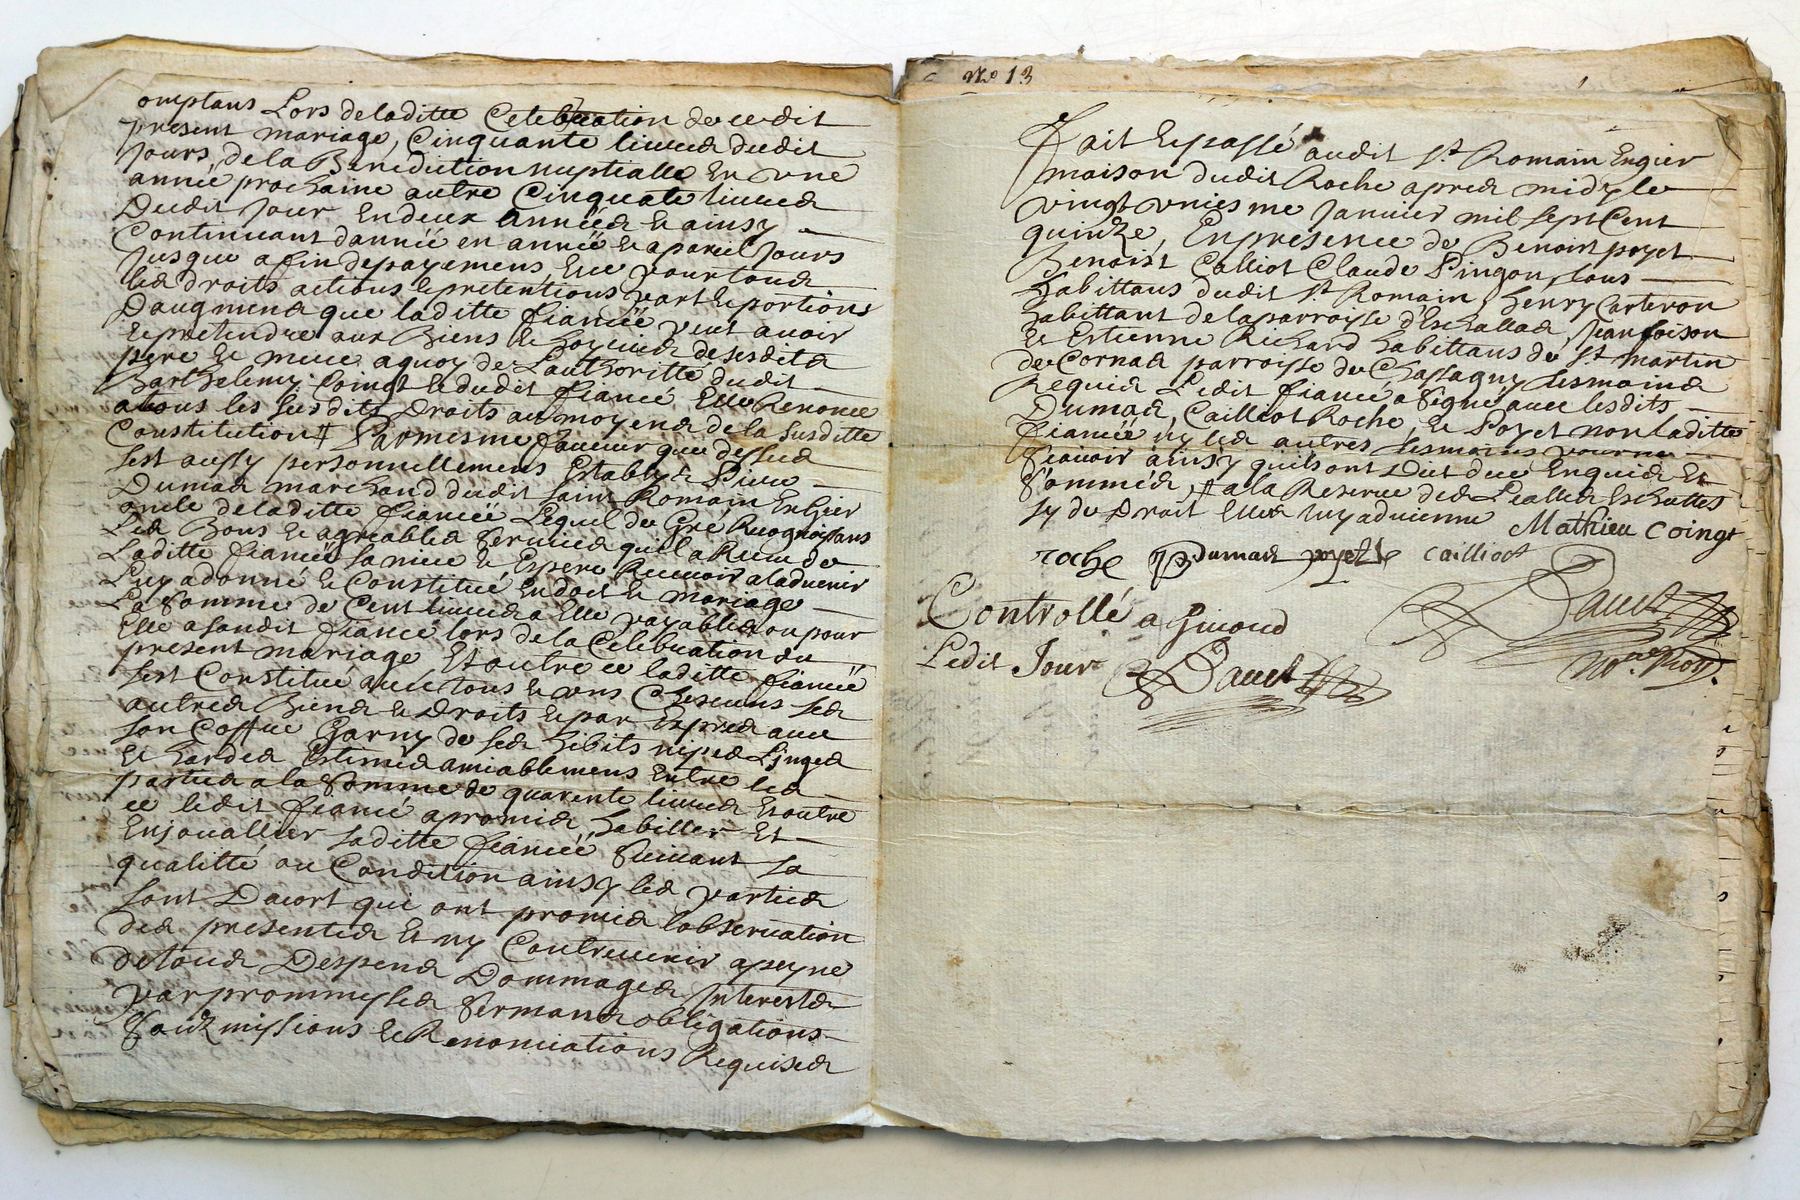 omptans Lors deladitte Celebration de cedit
present mariage, Cinquante livres dudit
Jours, de la Benediction nuptialle En une
année prochaine autre Cinquate livres
Dudit Jour En deux Années et ainsy
Continuant dannéé en annéé et apareil Jours
Jusque a fin de payemens Et pour tous
les droits actions et pretentions part et portions
Daugmens que laditte fiancéé peut avoir
et pretendre aux Biens et hoyries de sesdits
pere et mere a quoy de Lauthoritté dudit
Barthelemy Coingt et dudit fiancé Elle Renonce
a tous les susdits Droits au moyens de la susditte
Constitution # Par mesme faveur que dessus
sest aussy personnellemens Estably Sr Pierre
Dumas marchand dudit saint Romain En Gier
oncle deladitte fiancéé Lequel de Gré Recognoissans
Les Bons et agreables services quil a Receu de
Laditte fiancéé sa niece et Espere Recevoir a ladvenir
Luy a donné et Constitué En dot et mariage
La Somme de Cent livres a Elle payables ou pour
Elle a sondit fiancé lors de la Celebration du
present mariage Et outre ce laditte fiancéé
sest Constitue avec tous et uns Chescuns ses
autres Biens et Droits et par Expres avec
son Coffre Garny de ses hibits nipes Linges
et hardes Estimés amiablemens Entre les
parties a la Somme de quarente livres Et outre
ce ledit fiancé a promis habiller Et
Enjouallier saditte fiancéé Suivant sa
qualitté ou Condition ainsy les parties
sont Dacort qui ont promis lobservation
des presentes Et ny Contrevenir a peyne
de tous Despens Dommages Interests
par prommysses sermans obligations
Soubmissions et Renonciations Requises
No 13
Fait et passé audit St Romain En gier
maison dudit Roche apres midy le
vingt uniesme Janvier mil sept Cent
quinze, En presence de Benoist poyet
Benoist Calliot Claude Pingon, tous
habittans dudit St Romain, henry Carteron
habittant de la parroisse dEschallas, Jean foison
et Estienne Richard habittans de St martin
de Cornas parroisse de Chassagny tesmoins
Requis Ledit fiancé a Signé avec lesdits
Dumas, Cailliot Roche, et Poyet non laditte
fiancéé ny les autres tesmoins pour ne
scavoir ainsy quils ont Dit de ce Enquis Et
Sommés, # a la Reserve des Lealles Eschuttes
sy de Droit Elles luy advienne Mathieu Coingt
roche p Dumas poyet cailliot
Dauet
Controllé a Givord
Ledit Jour Dauet